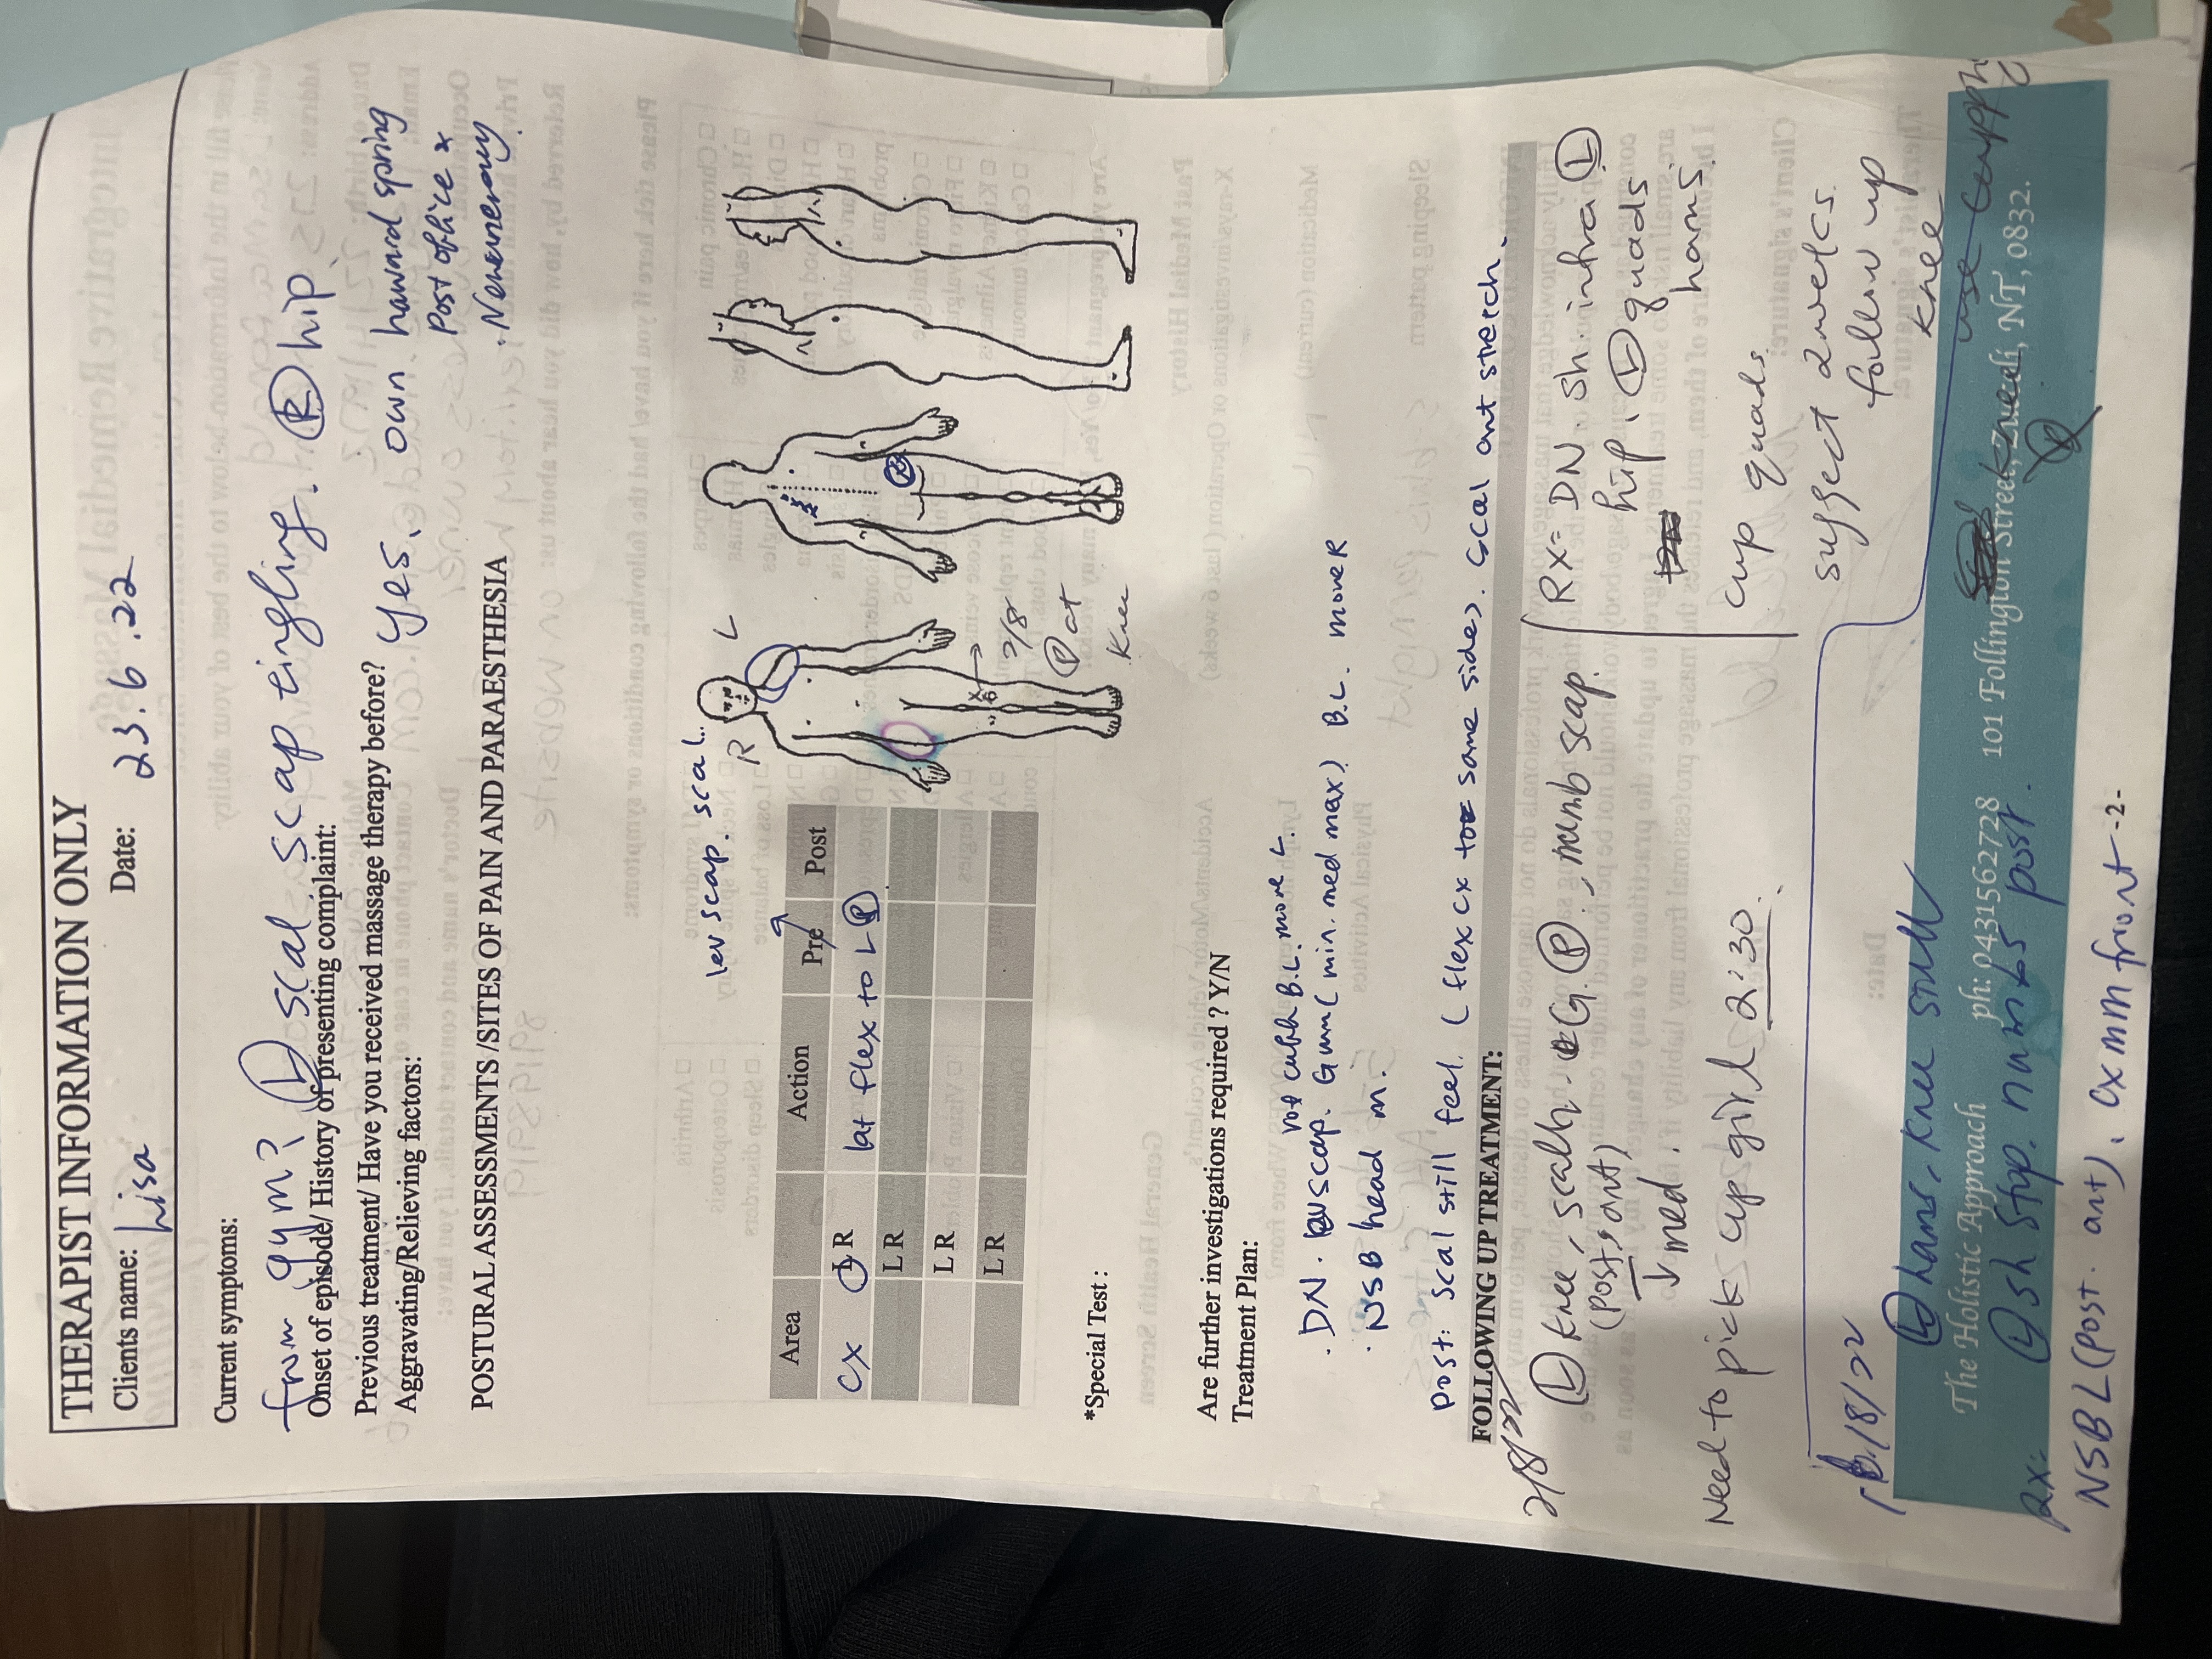 THERAPIST INFORMATION ONLY
Clients name: Lisa Date: 23.6.22
Current symptoms:
from gym? (L) scal scap tingling. (R) hip.
Onset of episode/ History of presenting complaint:
Previous treatment/ Have you received massage therapy before? Yes. own haward spring
Post office x
Aggravating/Relieving factors:
POSTURAL ASSESSMENTS /SITES OF PAIN AND PARAESTHESIA
lev scap. scal..
R L
Area Action Pre Post
Cx L R lat flex to L (P)
L R
L R
L R
(R)
2/8
(P) at
knee
*Special Test :
Are further investigations required ? Y/N
Treatment Plan:
rot cuff B.L. more L.
. DN. lev scap. Gmm (min. med max) B.L. more R
. NSB head m.
post: scal still feel. (flex cx to same side). scal ant stretch.
FOLLOWING UP TREATMENT:
2/8/22
(L) knee, scalh. G. (P), numb scap.
(post, ant)
↓ med.
Need to pick up girl 2:30.
Rx= DN. sh. infra (L)
hip. (L) quads
hams.
cup quads.
suggest 2 weeks
follow up
knee
18/22
(L) hams, knee still
use cupping
The Holistic Approach ph: 0431562728 101 Follington Street, Zuccoli, NT, 0832.
(L) sh stop. numbs post.
knee
(P)
Rx=
NSBL (post. ant), cx mm front
-2-